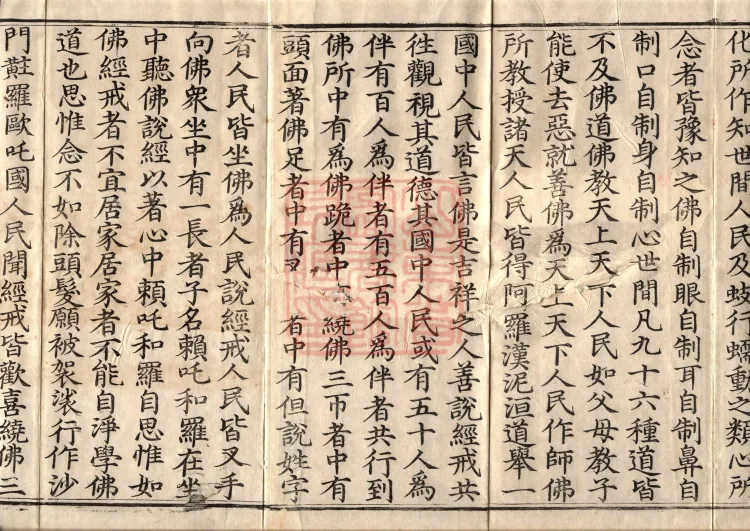 化所作知世間人民及蚑行蠕動之類心所
念者皆豫知之佛自制眼自制耳自制鼻自
制口自制身自制心世間凡九十六種道皆
不及佛道佛教天上天下人民如父母教子
能使去惡就善佛爲天上天下人民作師佛
所教授諸天人民皆得阿羅漢泥洹道舉一
國中人民皆言佛是吉祥之人善說經戒共
徃觀視其道德其國中人民或有五十人爲
伴有百人爲伴者有五百人爲伴者共行到
佛所中有爲佛跪者中繞佛三帀者中有
頭面著佛足者中有叉者中有但說姓字
者人民皆坐佛爲人民說經戒人民皆叉手
向佛衆坐中有一長者子名賴吒和羅在坐
中聽佛說經以著心中賴吒和羅自思惟如
佛經戒者不宜居家居家者不能自淨學佛
道也思惟念不如除頭髮願被袈裟行作沙
門黈羅歐吒國人民聞經戒皆歡喜繞佛三